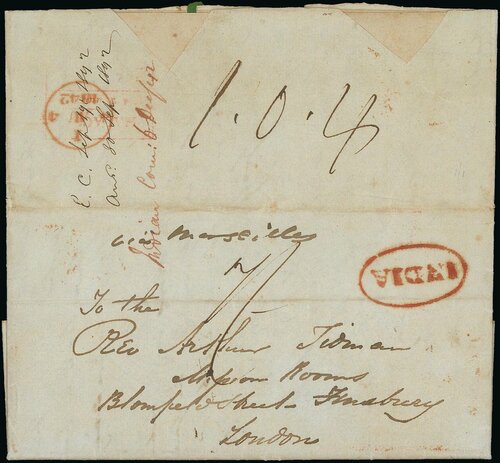 E. C. Sep 29 1842
Ans. 30 Sep 1842
1842
1.0.4
via Marseilles
INDIA
To the
Rev Arthur Tidman
Mission Rooms
Blomfield Street Finsbury
London